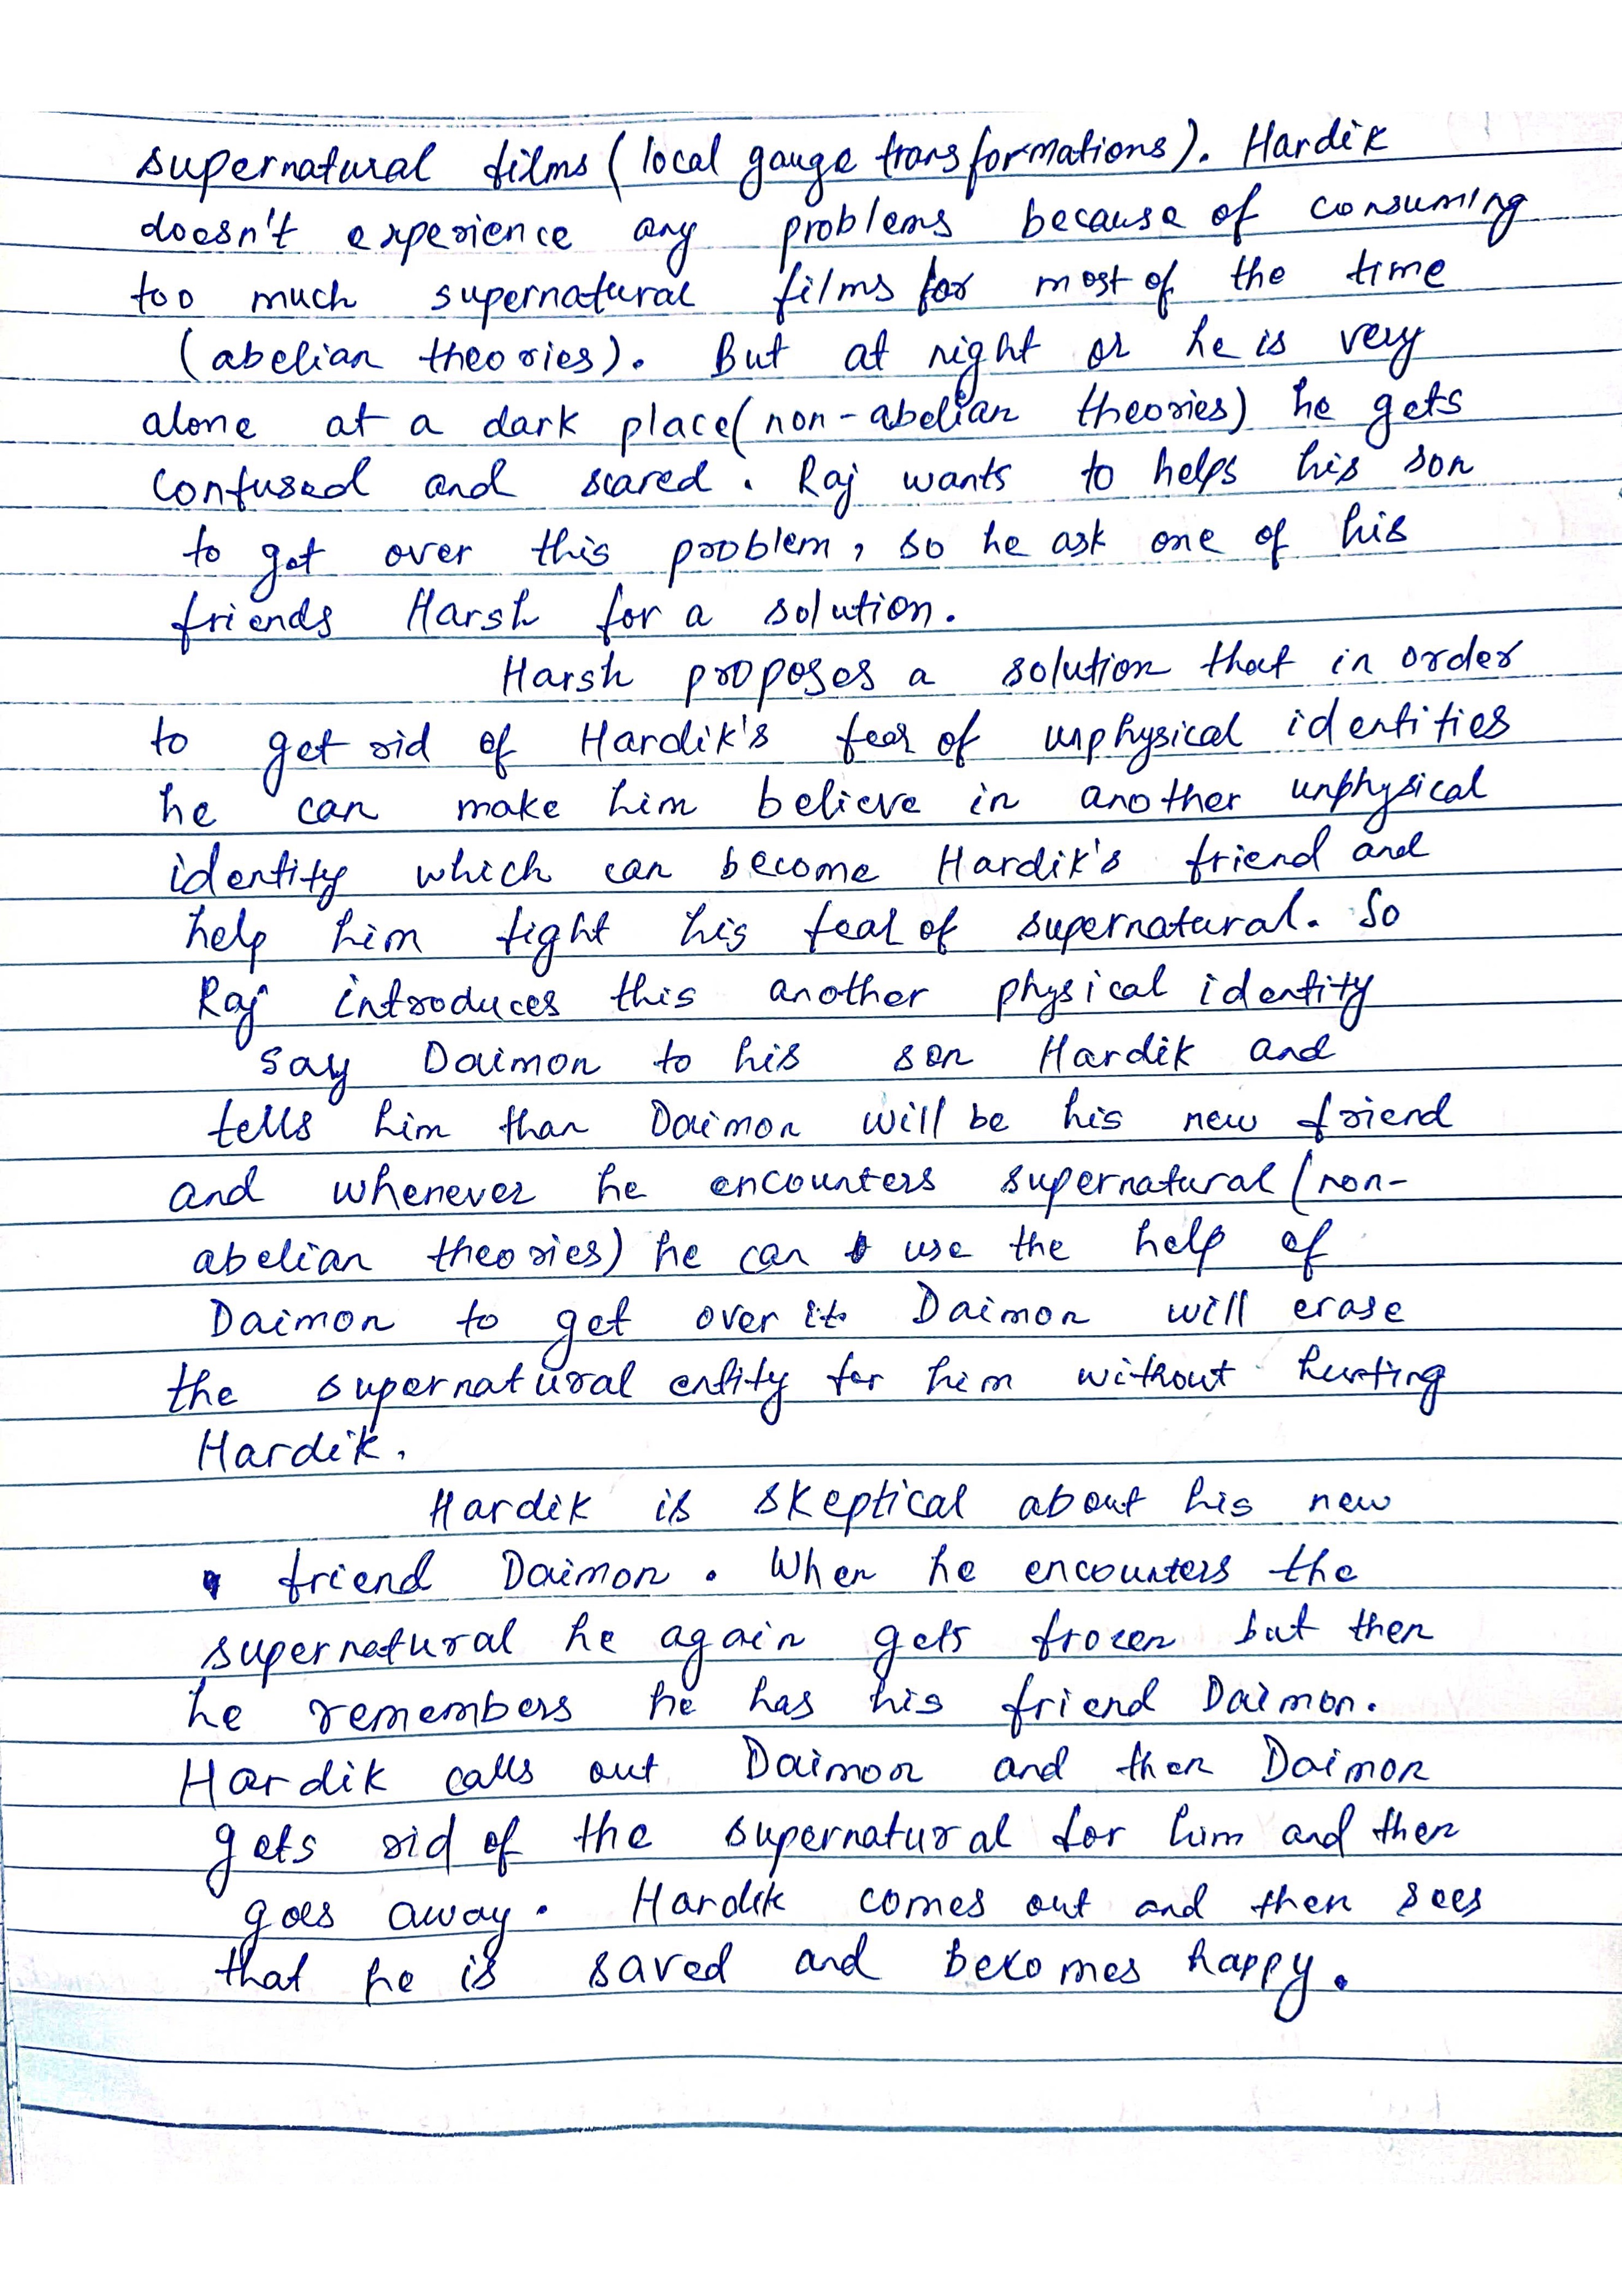 supernatural films (local gauge transformations). Hardik
doesn't experience any problems because of consuming
too much supernatural films for most of the time
(abelian theories). But at night or he is very
alone at a dark place (non-abelian theories) he gets
confused and scared. Raj wants to helps his son
to get over this problem, so he ask one of his
friends Harsh for a solution.
Harsh proposes a solution that in order
to get rid of Hardik's fear of unphysical identities
he can make him believe in another unphysical
identity which can become Hardik's friend and
help him fight his fear of supernatural. So
Raj introduces this another physical identity
say Daimon to his son Hardik and
tells him than Daimon will be his new friend
and whenever he encounters supernatural (non-
abelian theories) he can use the help of
Daimon to get over it. Daimon will erase
the supernatural entity for him without hurting
Hardik.
Hardik is skeptical about his new
friend Daimon. When he encounters the
supernatural he again gets frozen but then
he remembers he has his friend Daimon.
Hardik calls out Daimon and then Daimon
gets rid of the supernatural for him and then
goes away. Hardik comes out and then sees
that he is saved and becomes happy.